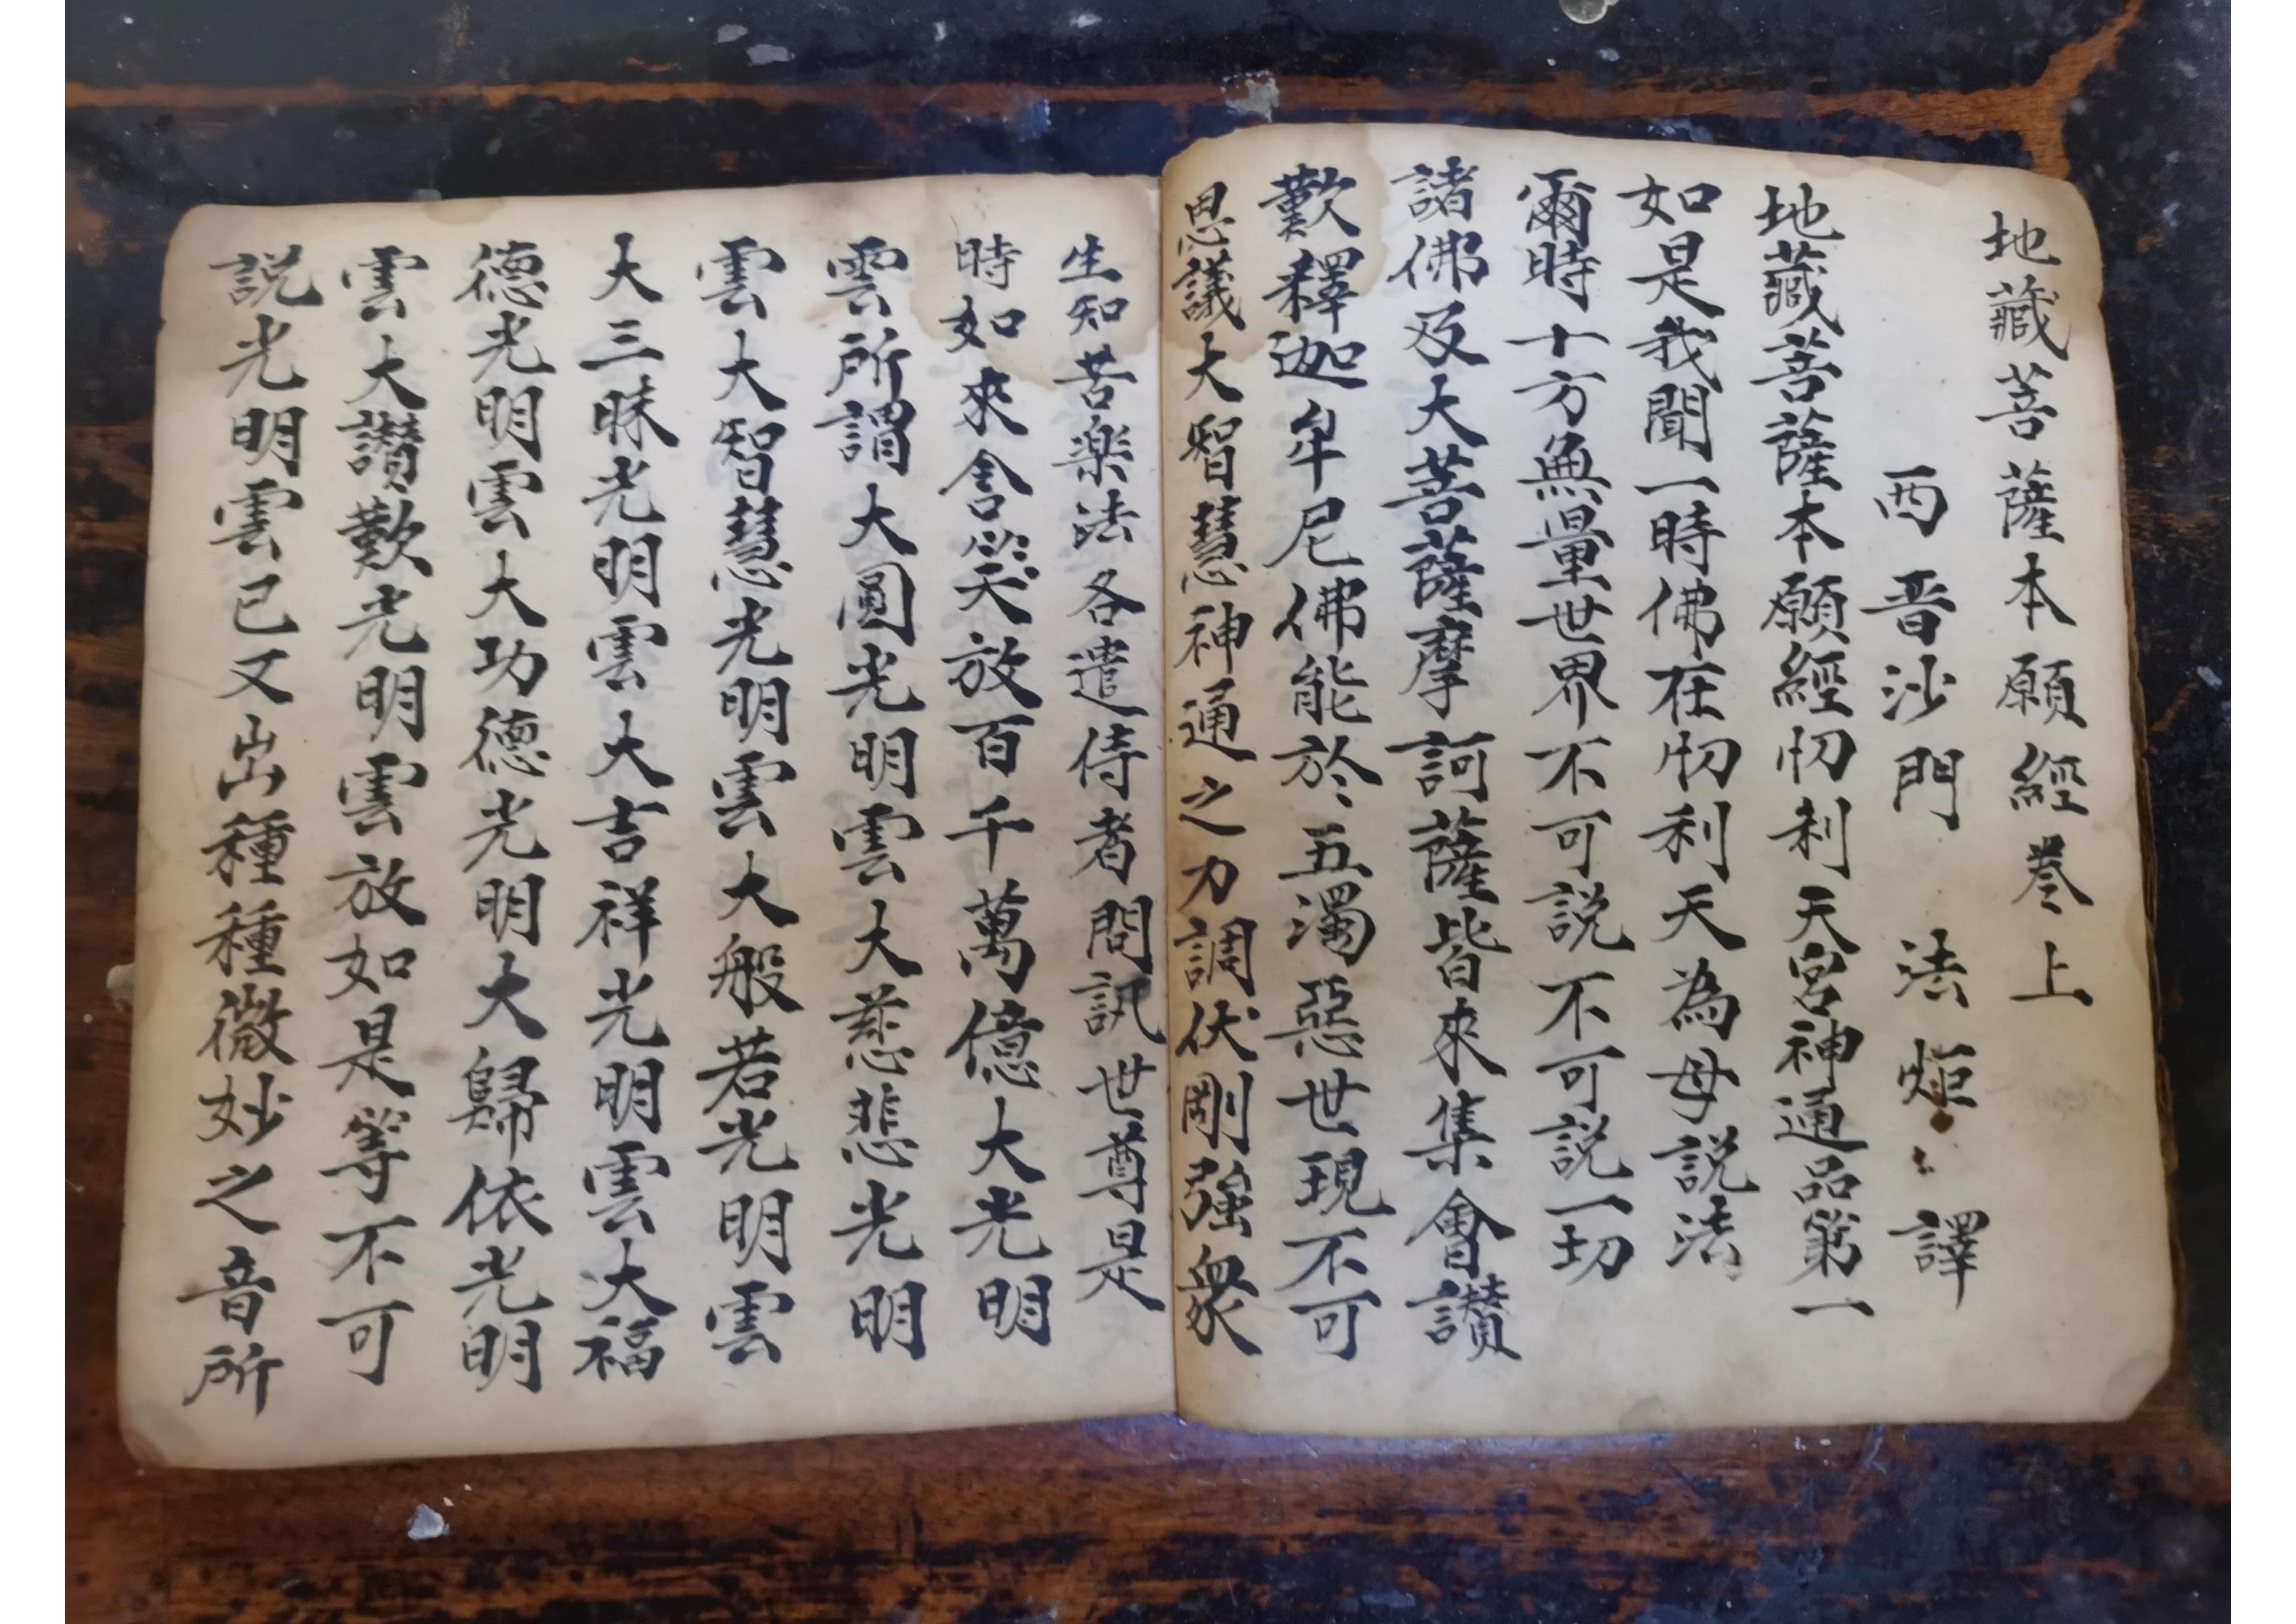 地藏菩薩本願經卷上
西晋沙門 法炬 譯
地藏菩薩本願經忉利天宮神通品第一
如是我聞一時佛在忉利天為母説法
爾時十方無量世界不可説不可説一切
諸佛及大菩薩摩訶薩皆來集會讃
歎釋迦牟尼佛能於五濁惡世現不可
思議大智慧神通之力調伏剛強衆
生知苦楽法各遣侍者問訊世尊是
時如來含笑放百千萬億大光明
雲所謂大圓光明雲大慈悲光明
雲大智慧光明雲大般若光明雲
大三昧光明雲大吉祥光明雲大福
德光明雲大功德光明大歸依光明
雲大讃歎光明雲放如是等不可
説光明雲已又出種種微妙之音所